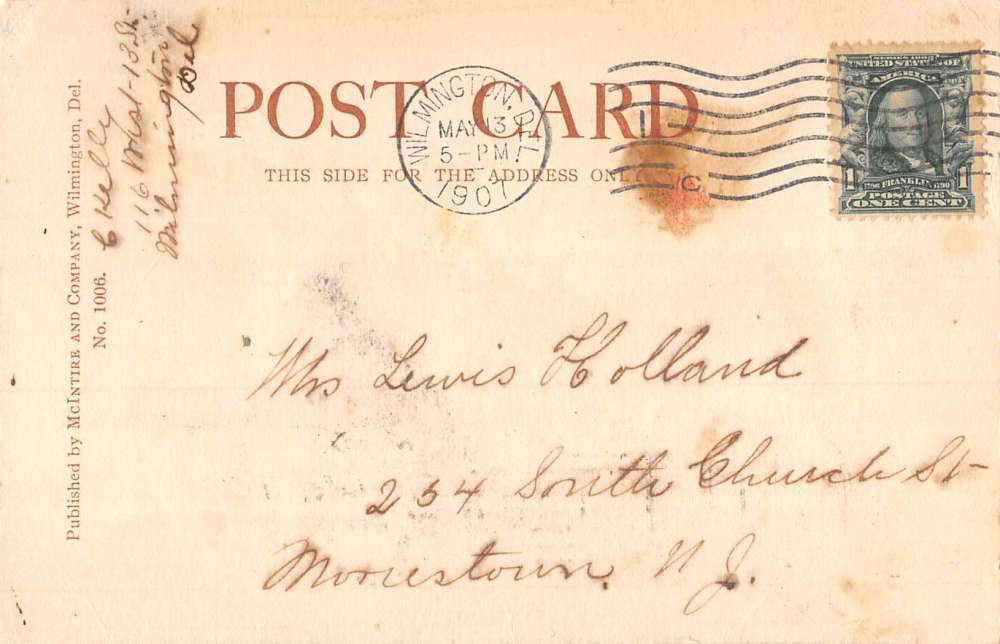 POST CARD
THIS SIDE FOR THE ADDRESS ONLY
WILMINGTON, DEL.
MAY 13
5-PM
1907
C
SERIES 1902
UNITED STATES OF
AMERICA
1 1790 FRANKLIN 1790 1
POSTAGE
ONE CENT
C Kelly
116 West-13 St-
Wilmington
Del
Published by McIntire and Company, Wilmington, Del.
No. 1006.
Mrs Lewis Holland
234 South Church St-
Morrestown. N J.